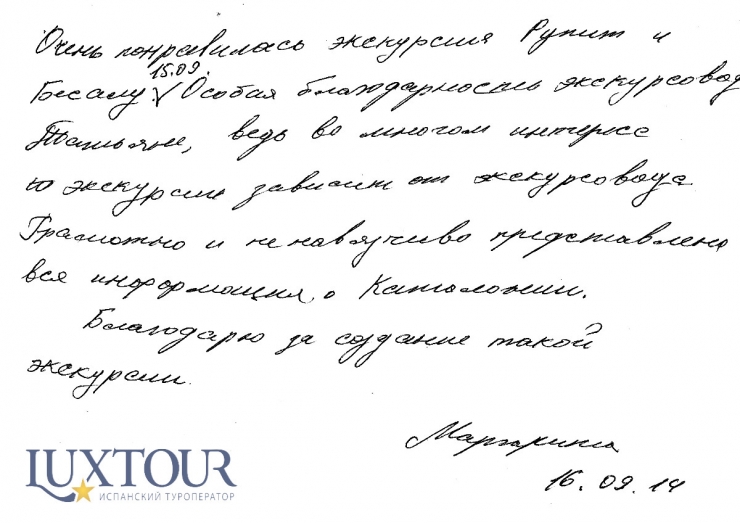 Очень понравилась экскурсия Рупит и
15.09.
Бесалу. V Особая благодарность экскурсовод
Татьяне, ведь во многом интерес
к экскурсии зависит от экскурсовода
Грамотно и ненавязчиво представлена
вся информация о Каталонии.
Благодарю за создание такой
экскурсии.
Маргарита
16.09.14
LUXTOUR
ИСПАНСКИЙ ТУРОПЕРАТОР